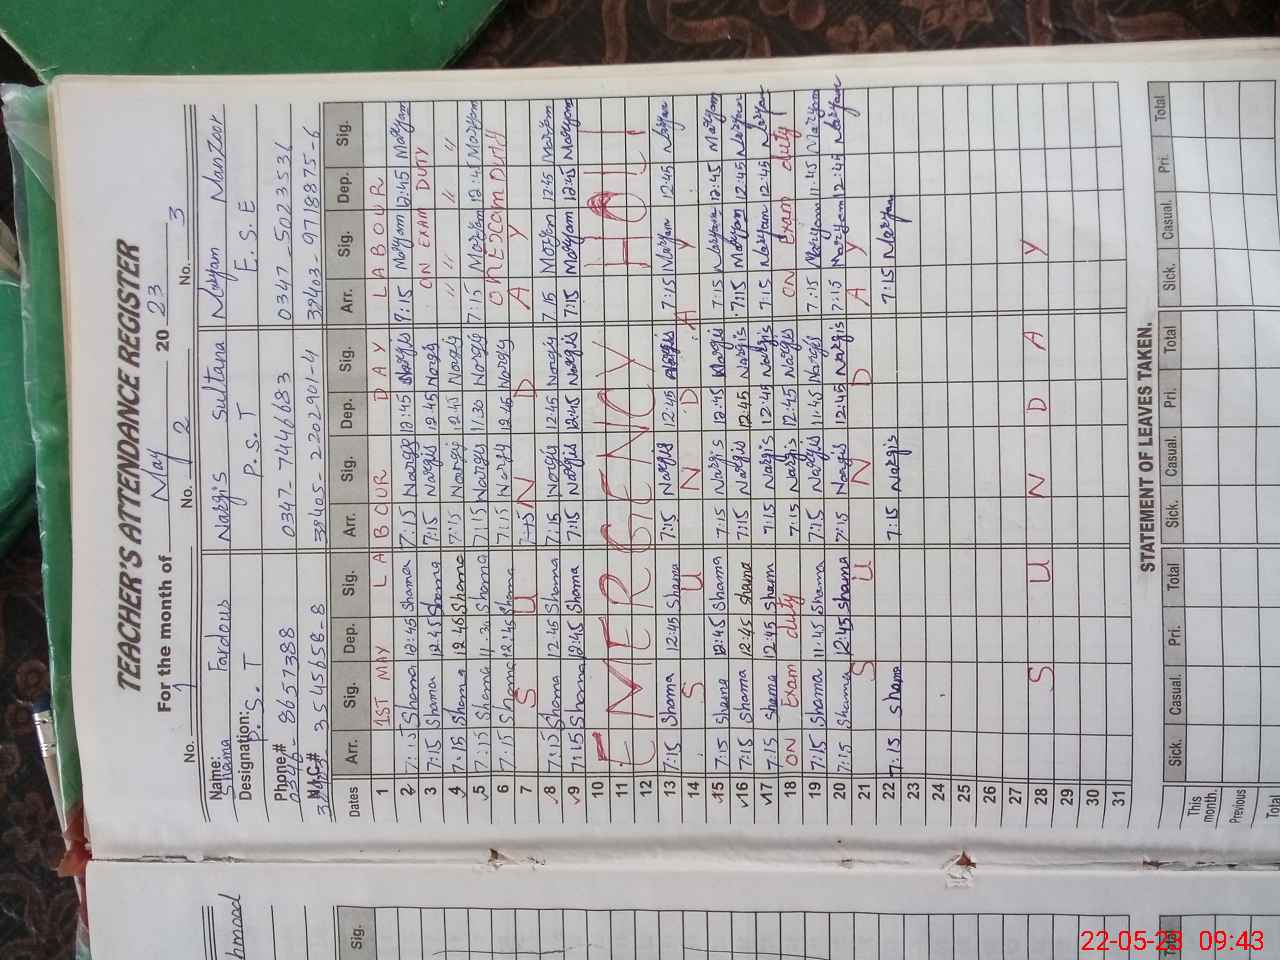 TEACHER'S ATTENDANCE REGISTER
For the month of May 2023
No. 1 No. 2 No. 3
Name: Shama Fardous Nargis Sultana Maryam Manzoor
Designation: P. S. T P. S. T E. S. E
Phone# 0346-8657388 0347-7446683 0347-5023536
Dates Arr. Sig. Dep. Sig. Arr. Sig. Dep. Sig. Arr. Sig. Dep. Sig.
1 1ST MAY LABOUR DAY LABOUR
2 7:15 Shama 12:45 Shama 7:15 Nargis 12:45 Nargis 7:15 Maryam 12:45 Maryam
3 7:15 Shama 12:45 Shama 7:15 Nargis 12:45 Nargis ON EXAM DUTY
4 7:15 Shama 12:45 Shama 7:15 Nargis 12:45 Nargis " " " "
5 7:15 Shama 11:30 Shama 7:15 Nargis 11:30 Nargis 7:15 Maryam 12:45 Maryam
6 7:15 Shama 12:45 Shama 7:15 Nargis 12:45 Nargis ON EXAM DUTY
7 S U N D A Y
8 7:15 Shama 12:45 Shama 7:15 Nargis 12:45 Nargis 7:15 Maryam 12:45 Maryam
9 7:15 Shama 12:45 Shama 7:15 Nargis 12:45 Nargis 7:15 Maryam 12:45 Maryam
10
11 EMERGENCY HOLI
12
13 7:15 Shama 12:45 Shama 7:15 Nargis 12:45 Nargis 7:15 Maryam 12:45 Maryam
14 S U N D A Y
15 7:15 Shama 12:45 Shama 7:15 Nargis 12:45 Nargis 7:15 Maryam 12:45 Maryam
16 7:15 Shama 12:45 Shama 7:15 Nargis 12:45 Nargis 7:15 Maryam 12:45 Maryam
17 7:15 Shama 12:45 Shama 7:15 Nargis 12:45 Nargis 7:15 Maryam 12:45 Maryam
18 ON Exam duty 7:15 Nargis 12:45 Nargis ON Exam duty
19 7:15 Shama 11:45 Shama 7:15 Nargis 11:45 Nargis 7:15 Maryam 11:45 Maryam
20 7:15 Shama 12:45 Shama 7:15 Nargis 12:45 Nargis 7:15 Maryam 12:45 Maryam
21 S U N D A Y
22 7:15 Shama 7:15 Nargis 7:15 Maryam
23
24
25
26
27
28 S U N D A Y
29
30
31
STATEMENT OF LEAVES TAKEN.
Sick. Casual. Pri. Total Sick. Casual. Pri. Total Sick. Casual. Pri. Total
This month.
Previous
Total
Sig.
Total
22-05-23 09:43